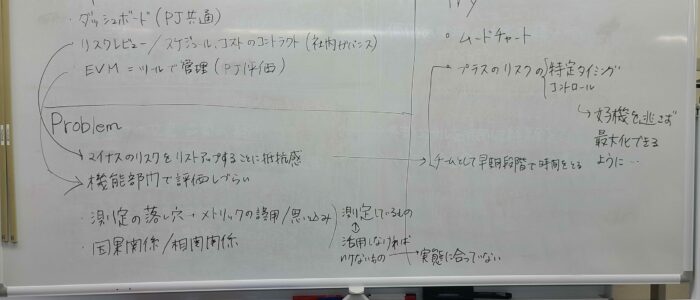 ・ダッシュボード(PJ共通)
・リスクレビュー/スケジュール、コストのコントラクト(社内ガバナンス)
・EVM=ツールで管理(PJ評価)
Problem
・マイナスのリスクをリストアップすることに抵抗感
・機能部門で評価しづらい
・測定の落し穴→メトリックの誤用/思い込み
・因果関係/相関関係
測定しているもの
⇕
活用しなければ
いけないもの → 実態に合っていない
ry
・ムードチャート
・プラスのリスクの{特定タイミング
コントロール
↳ 好機を逃さず
最大化できる
ように…
チームとして早期段階で時間をとる